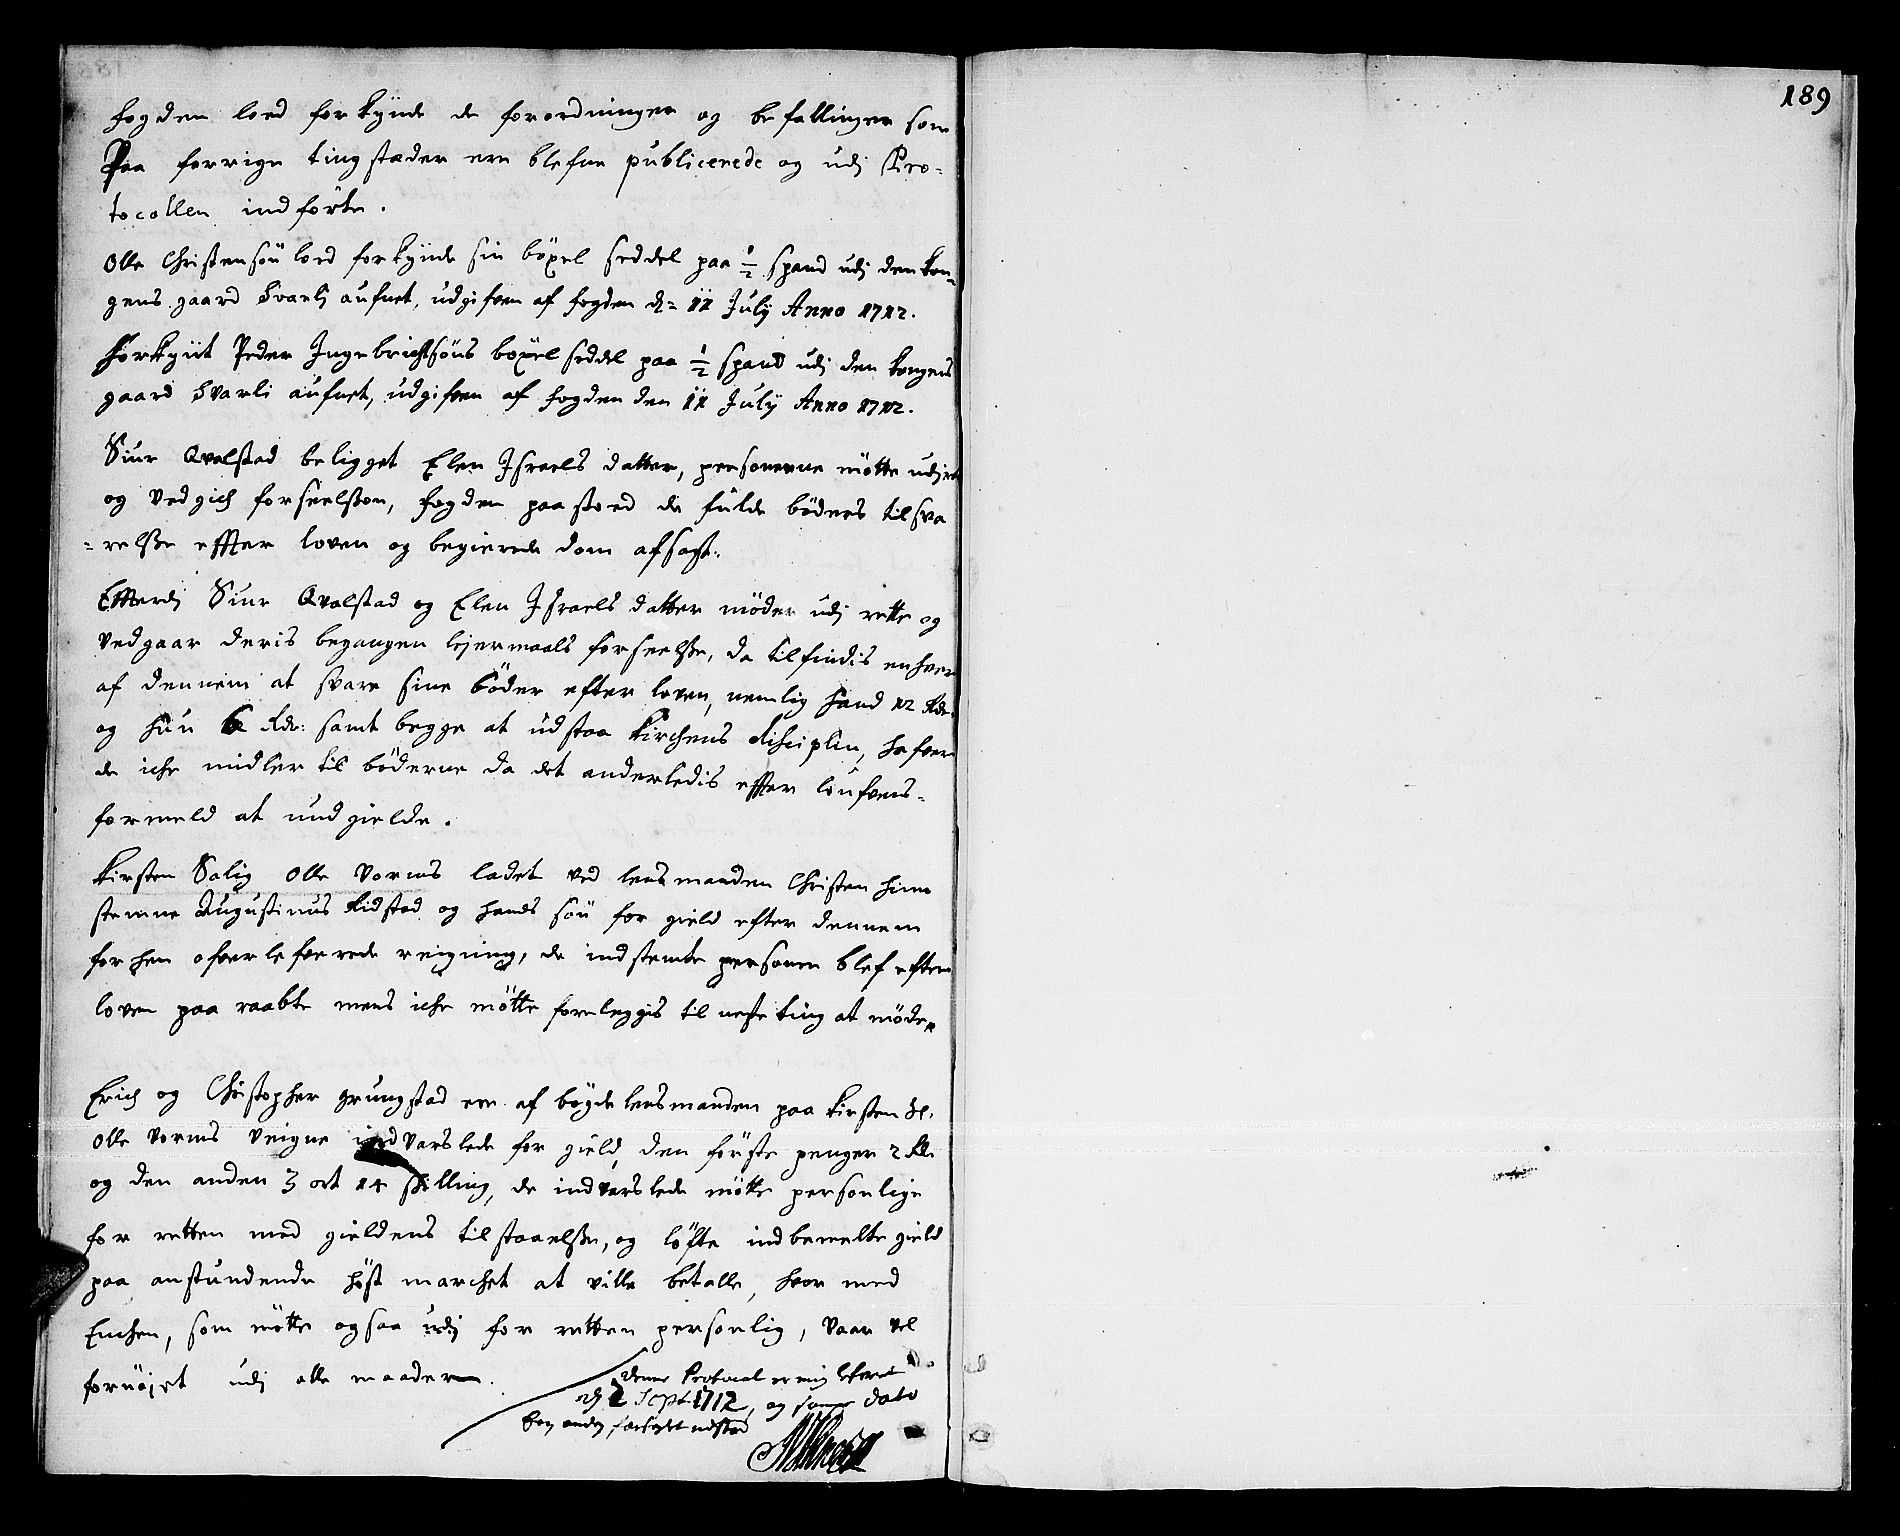 189
fogden loed forkynde de forordninger og befallinger som
Paa forrige tingstæder ere blefne publicerede og udj Pro-
tocollen indförte.
Olle Christensön loed forkynde sin böxel seddel paa ½ spand udj den kon-
gens gaard Svarlj aufnet, udgifven af fogden d= 11 July Anno 1712.
Forkynt Peder Ingebrichtsöns boxel seddel paa ½ spand udj den kongens
gaard Svarli aufnet, udgifven af fogden den 11 July Anno 1712.
Siur Qvalstad beligget Elen Israels datter, personerne mötte udj ret
og vedgich forseelssen, fogden paastoed de fulde böders tilsva
=relsse effter loven og begierede dom afsagt.
Effterdj Siur Qvalstad og Elen Israels datter möder udj rette og
vedgaar deris begangen lejermaals forseelsse, da tilfindis enhver
af dennem at svare sine böder efter loven, nemlig hand 12 Rdr:
og hun 6 Rdr: samt begge at udstaa kirchens disciplin, hafver
de iche midler til böderne da det anderledis effter loufvens-
formeld at undgielde.
Kirsten Salig Olle Vorms ladet ved lensmanden Christen Hiem
stemne Augustinus Kidstad og hands sön for gield efter dennem
forhen ofverlefverede reigning, de indstemte personer blef efter
loven paa raabte mens iche mötte foreleggis til neste ting at möde.
Erich og Christopher Grungstad ere af böyde lensmanden paa Kirsten Sl.
Olle Vorms veigne indvarslede for gield, den förste penger 2 Rdr
og den anden 3 ort 14 skilling, de indvarslede mötte personlige
for retten med gieldens tilstaaelsse, og löfte indbemelte gield
paa anstundende höst marchet at ville betalle, hvor med
Enchen, som mötte ogsaa udj for retten personlig, vaar vel
fornöjet udj alle maader.
Denne Protocol er mig leferet
d 2 Sept. 1712, og samme dato